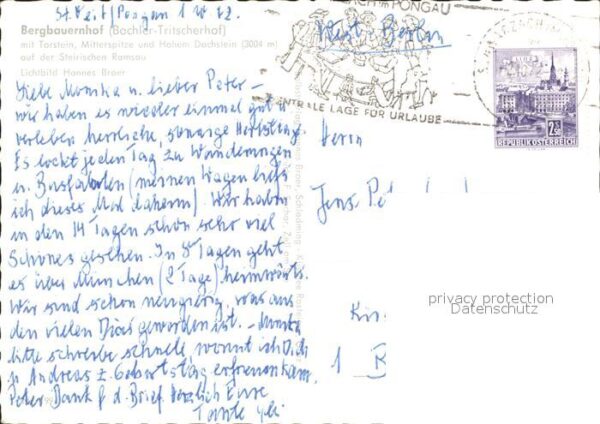 St. Veit/Pongau 1
Bergbauernhof (Bachler-Tritscherhof)
mit Torstein, Mitterspitze und Hohem Dachstein (3004 m)
auf der Steirischen Ramsau
Lichtbild Hannes Broer
Liebe Monika u. lieber Peter –
wir haben es wieder einmal gut u.
verleben herrliche, sonnige Herbsttage.
Es lockt jeden Tag zu Wanderungen
u. Busfahrten (meinen Wagen ließ
ich dieses Mal daheim). Wir haben
in den 14 Tagen schon sehr viel
Schönes gesehen. In 8 Tagen geht
es über München (2 Tage) heimwärts.
Wir sind schon neugierig, was aus
den vielen Dias geworden ist. – Monika
bitte schreibe schnell, womit ich Dich
u. Andreas z. Geburtstag erfreuen kann.
Peter Dank f. d. Brief. Herzlich Eure
Tante
PONGAU
ZENTRALE LAGE FÜR URLAUBE
West-Berlin
2.50
REPUBLIK ÖSTERREICH
Herrn
Jens
1
privacy protection
Datenschutz